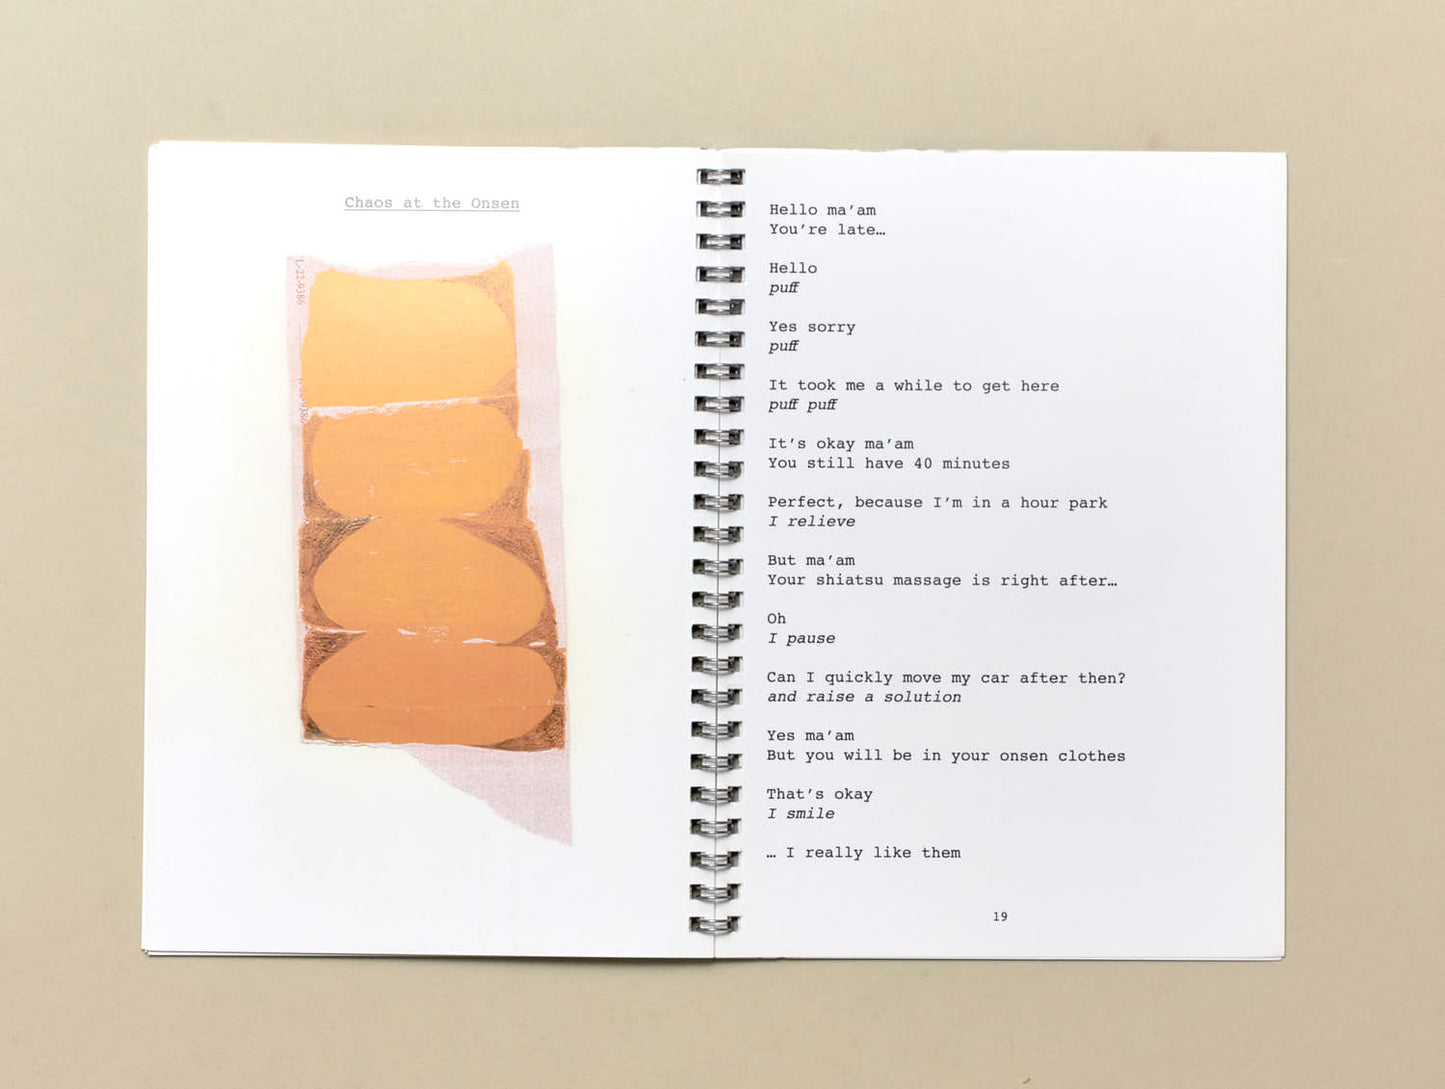 Chaos at the Onsen
1-22-9386
9386
Hello ma’am
You’re late…
Hello
puff
Yes sorry
puff
It took me a while to get here
puff puff
It’s okay ma’am
You still have 40 minutes
Perfect, because I’m in a hour park
I relieve
But ma’am
Your shiatsu massage is right after…
Oh
I pause
Can I quickly move my car after then?
and raise a solution
Yes ma’am
But you will be in your onsen clothes
That’s okay
I smile
… I really like them
19